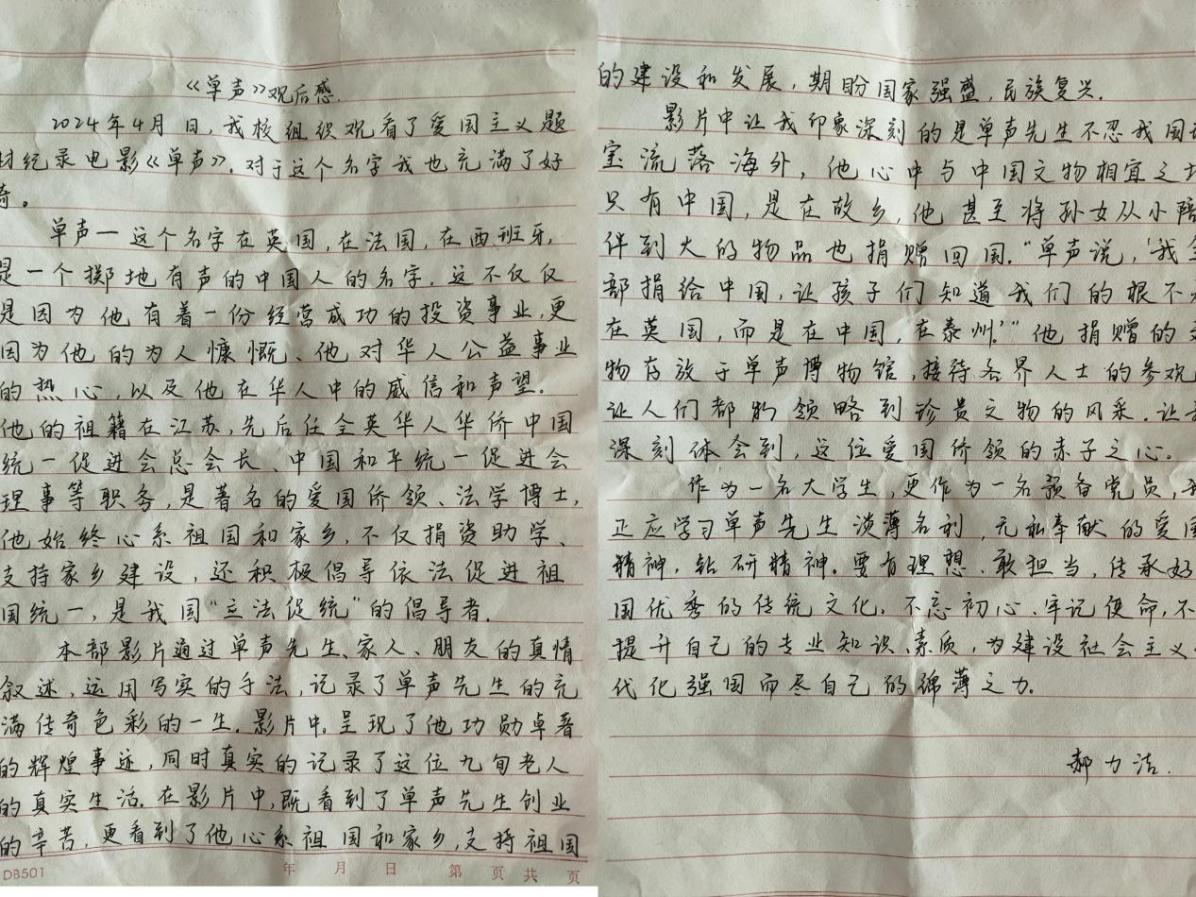 《单声》观后感.
2024年4月 日,我校组织观看了爱国主义题
材纪录电影《单声》.对于这个名字我也充满了好
奇。
单声一这个名字在英国,在法国,在西班牙,
是一个掷地有声的中国人的名字.这不仅仅
是因为他有着一份经营成功的投资事业,更
因为他的为人慷慨、他对华人公益事业
的热心,以及他在华人中的威信和声望.
他的祖籍在江苏,先后任全英华人华侨中国
统一促进会总会长、中国和平统一促进会
理事等职务,是著名的爱国侨领、法学博士,
他始终心系祖国和家乡,不仅捐资助学、
支持家乡建设,还积极倡导依法促进祖
国统一,是我国“立法促统”的倡导者.
本部影片通过单声先生、家人、朋友的真情
叙述,运用写实的手法,记录了单声先生的充
满传奇色彩的一生.影片中,呈现了他功勋卓著
的辉煌事迹,同时真实的记录了这位九旬老人
的真实生活.在影片中,既看到了单声先生创业
的辛苦,更看到了他心系祖国和家乡,支持祖国
DB501 年 月 日 第 页 共 页
的建设和发展,期盼国家强盛,民族复兴.
影片中让我印象深刻的是单声先生不忍我国
宝流落海外,他心中与中国文物相宜之地
只有中国,是在故乡,他甚至将孙女从小陪
伴到大的物品也捐赠回国.“单声说,‘我全
部捐给中国,让孩子们知道我们的根不
在英国,而是在中国,在泰州.’”他捐赠的文
物存放于单声博物馆,接待各界人士的参观
让人们都能领略到珍贵文物的风采.让我
深刻体会到,这位爱国侨领的赤子之心。
作为一名大学生,更作为一名预备党员,我
正应学习单声先生淡薄名利,无私奉献的爱国
精神,钻研精神.要有理想、敢担当,传承好
国优秀的传统文化.不忘初心、牢记使命,不
提升自己的专业知识、素质,为建设社会主义
代化强国而尽自己的绵薄之力.
郝力洁.